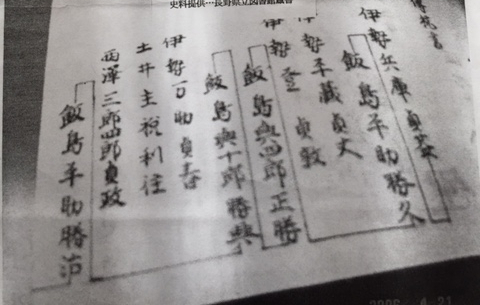 史料提供…長野県立図書館蔵書
伊好兵庫貞
飯島平助勝久
伊好平蔵貞丈
伊好登 貞敦
飯島與四郎正勝
飯島與十郎勝興
伊好万助貞春
土井主税利往
西澤三郎四郎貞政
飯島平助勝治
2006 4 21